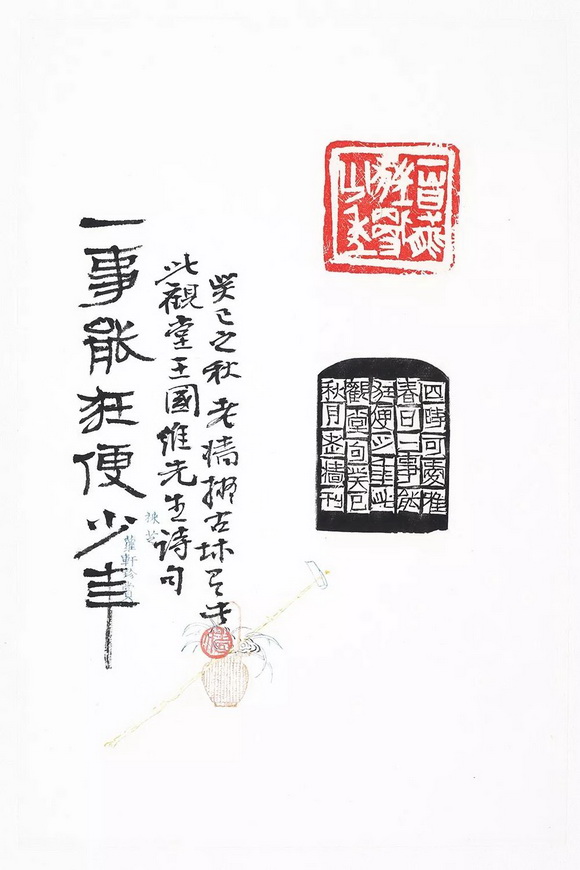 一事能
狂便
少年
四時可愛唯
春日一事能
狂便少年此
觀堂句癸巳
秋月老牆刊
一事能狂便少年
此觀堂王國維先生詩句
癸巳之秋老牆
古
軒珍賞
牆